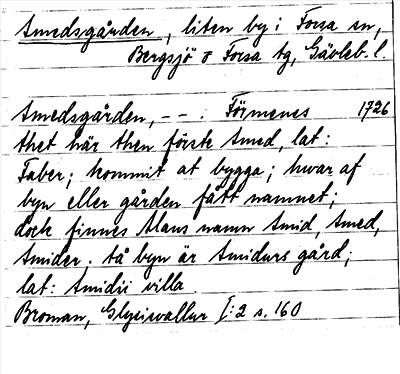 Smedsgården, liten by i Forsa sn,
Bergsjö o Forsa tg, Gävleb. l.
Smedsgården, – – . Förmenes 1726
thet här then förste Smed, lat:
Faber; kommit at bygga; hwar af
byn eller gården fått namnet;
dock finnes Mans namn Smid, Smed,
Smider. tå byn är Smidurs gård;
lat: Smidii villa.
Broman, Glysisvallur I:2 s. 160